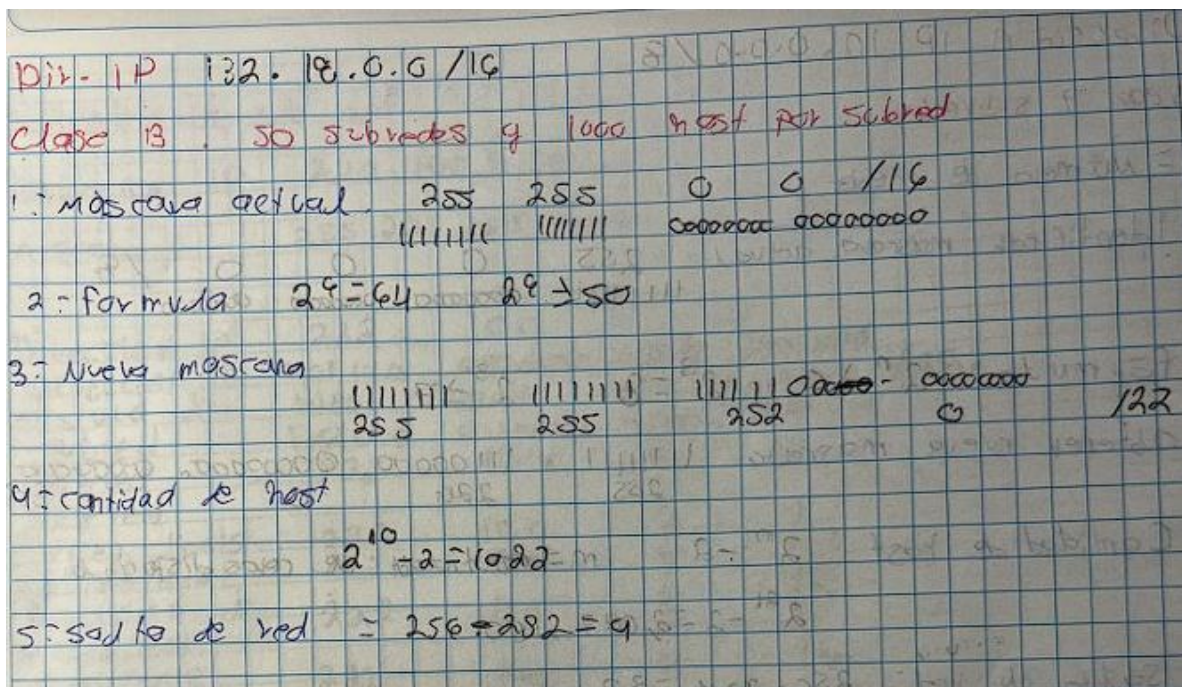 Dir- IP 132. 18.0.0 /16
Clase B. 50 subredes y 1000 host por subred
1: mascara actual 255 255 0 0 /16
11111111 11111111 00000000 00000000
2: formula 2⁶=64 2⁶ ≥50
3: Nueva mascara
11111111 11111111 11111100 - 00000000
255 255 252 0 /22
4: cantidad de host
2¹⁰-2=1022
5: salto de red = 256-252=4